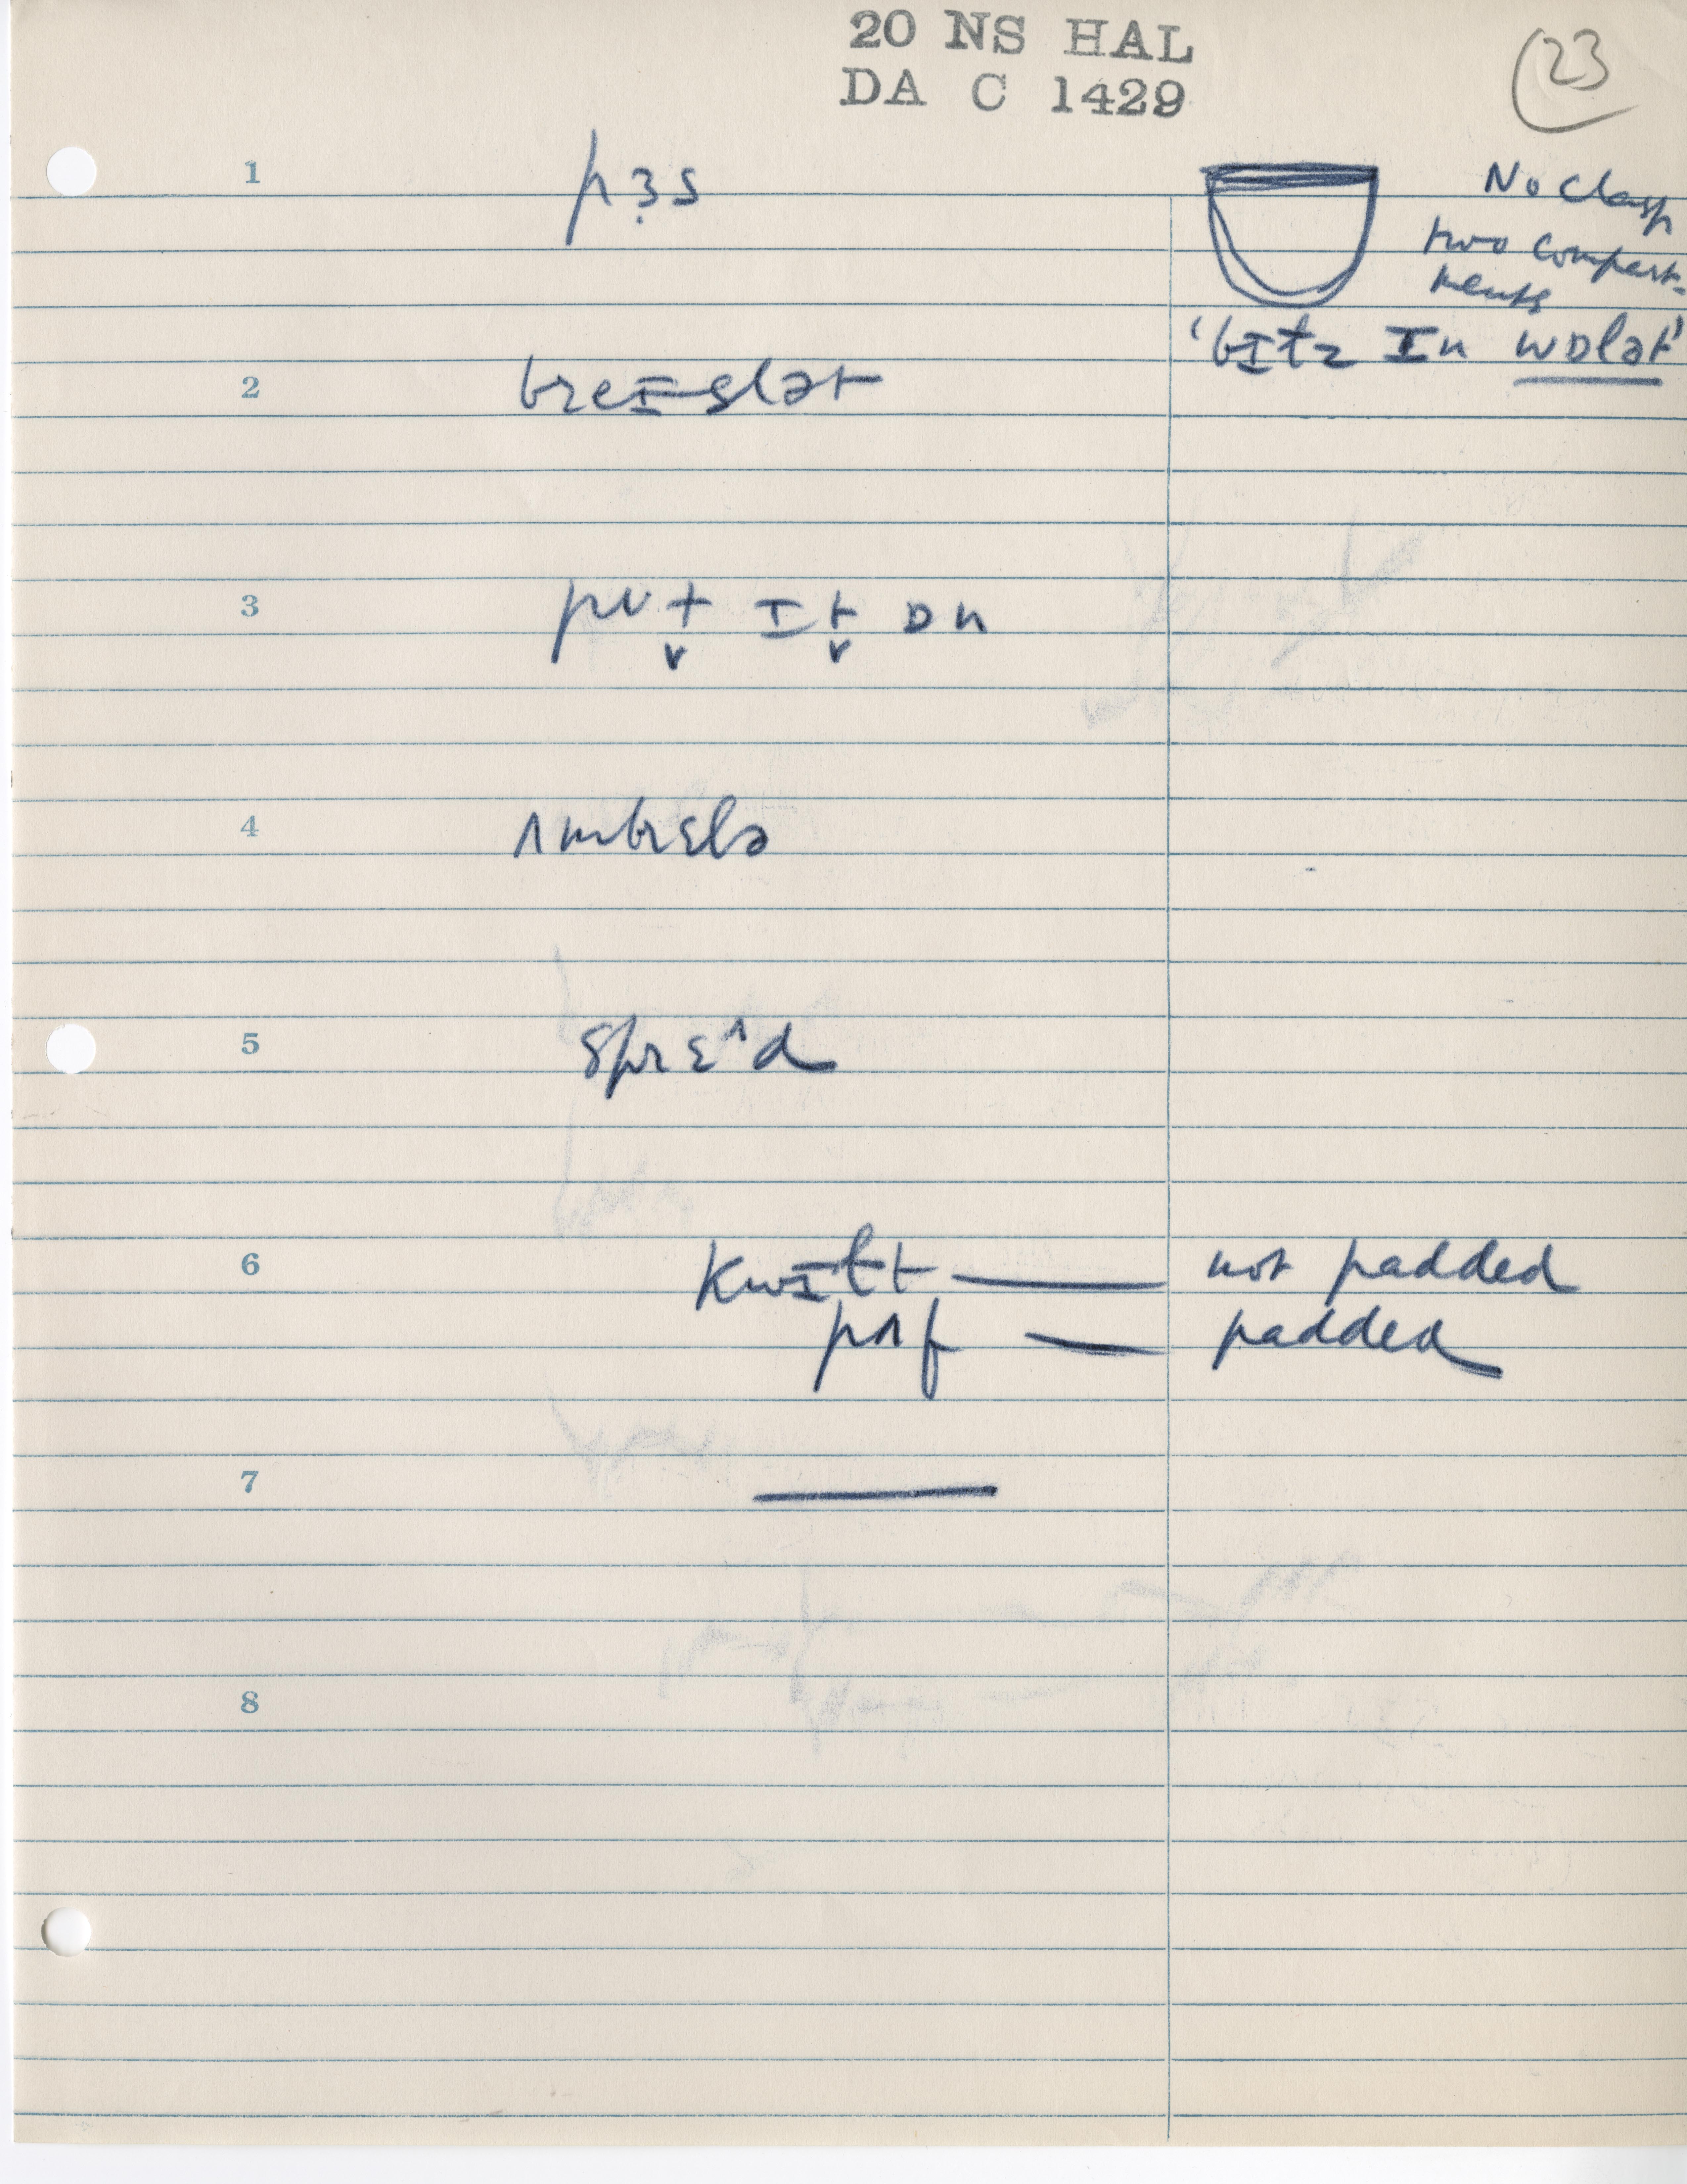 20 NS HAL
DA C 1429
23
1 pɜ̣s
No clasp
two compart-
ments
'bɪtz ɪn wɒlət'
2 breɪslət
3 pʊt̬ ɪt̬ ɒn
4 ʌmbrɛlə
5 sprɛ^d
6 kwɪɫt — not padded
pʌf — padded
7 —
8